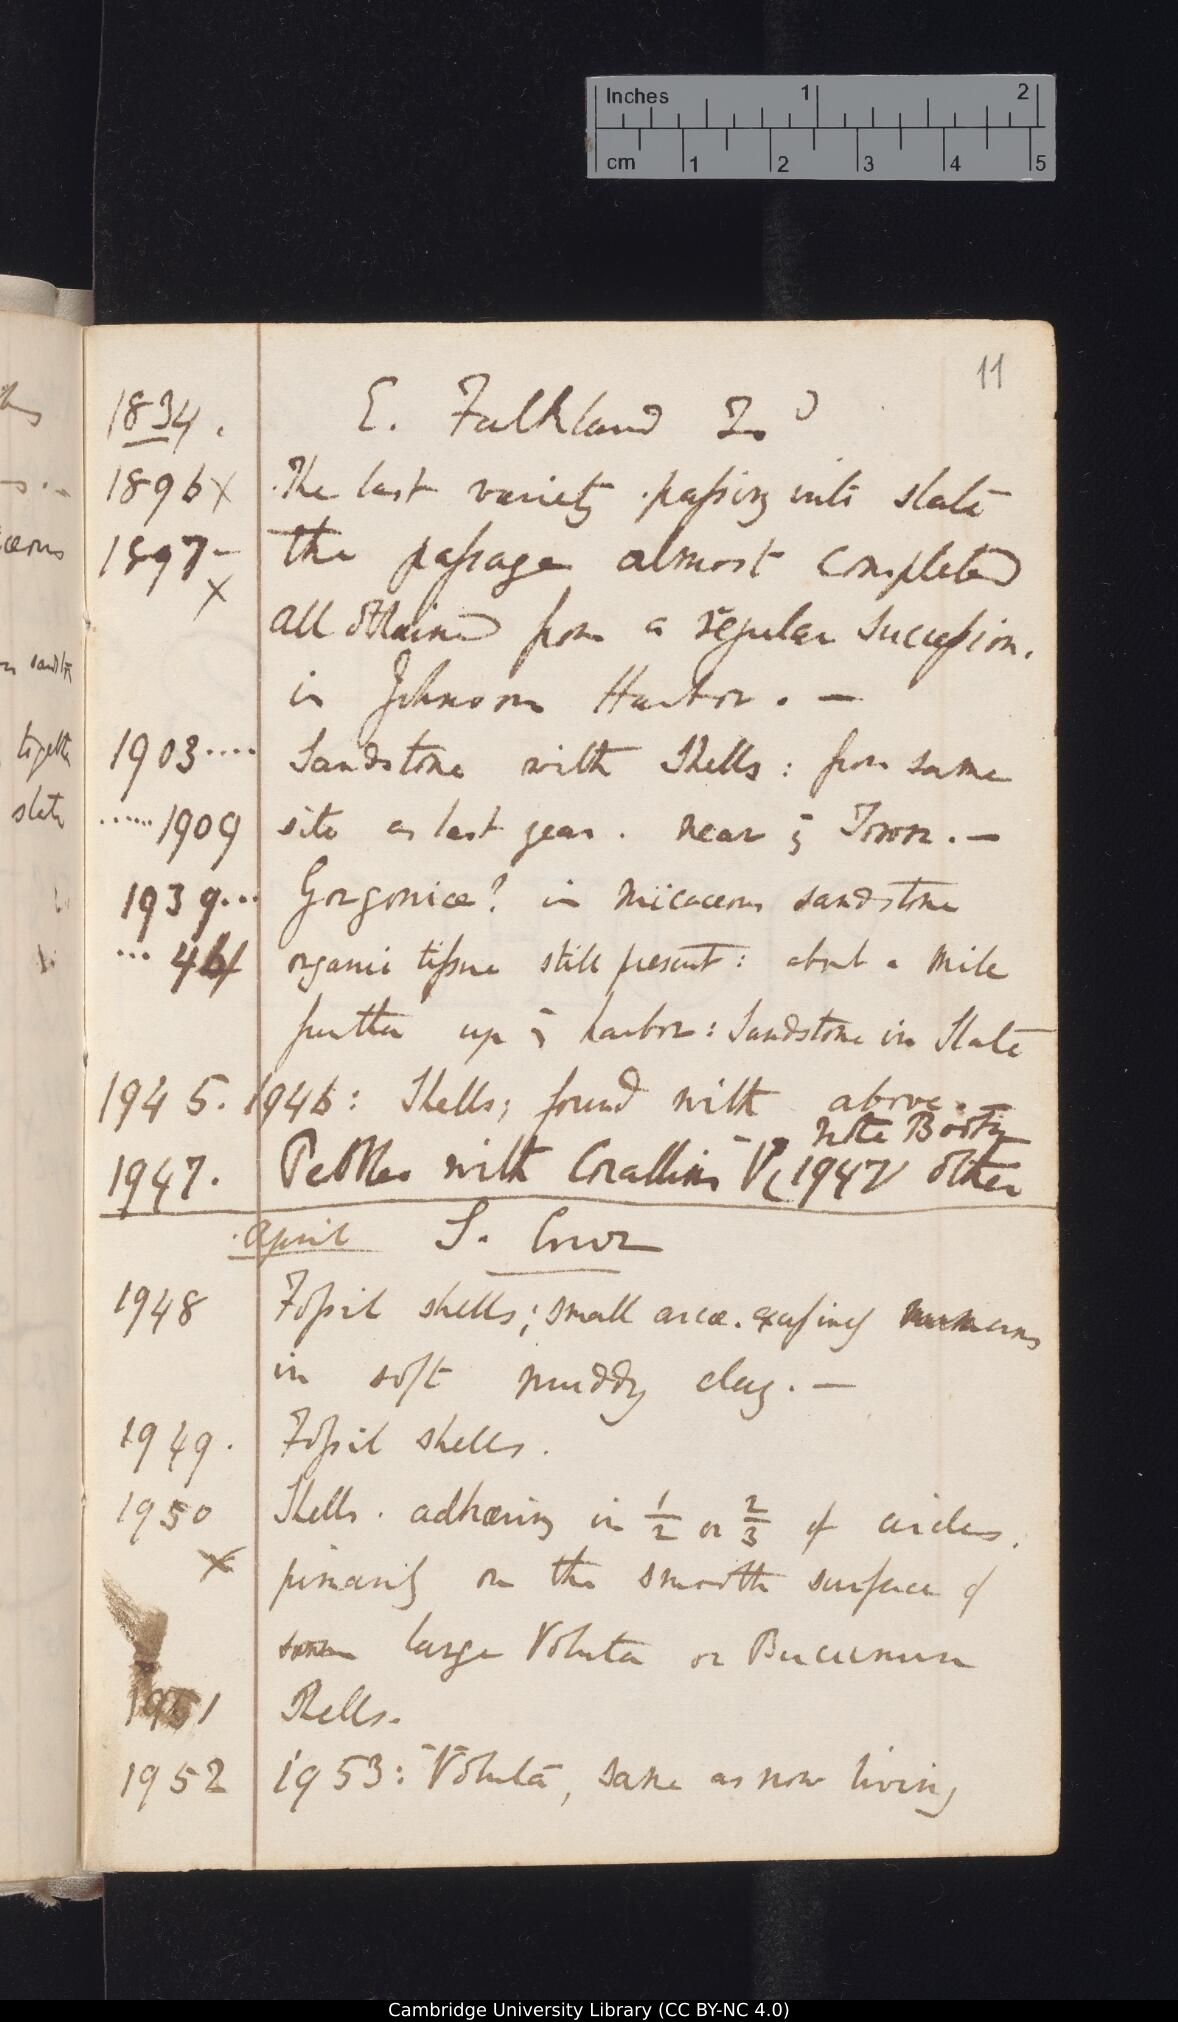 Inches 1 2
cm 1 2 3 4 5
11
1834. E. Falkland Isd
1896 x The last variety passing into slate
1897 - the passage almost completed
x
all obtained from a regular succession.
in Johnson Harbor. —
1903 .... Sandstone with Shells: from same
...... 1909 site as last year. near ye Town. —
1939... Gorgoniæ? in micaceous sandstone
... 44 organic tissue still present: about a mile
further up ye harbor: Sandstone in Slate
1945. 1946: Shells; found with above. —
note Book
1947. Pebbles with Corallines V. 1947 other
April S. Cruz
1948 Fossil shells; small arcæ. exceedingly numerous
in soft muddy clay. —
1949. Fossil shells.
1950 Shells. adhering in 1/2 or 2/3 of circles.
x primarily on the smooth surface of
some large Voluta or Buccinum
1951 Shells.
1952 1953: Voluta, same as now living
together
slate
Cambridge University Library (CC BY-NC 4.0)